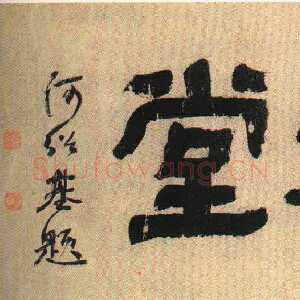 堂
何绍基题
Shufawang.CN